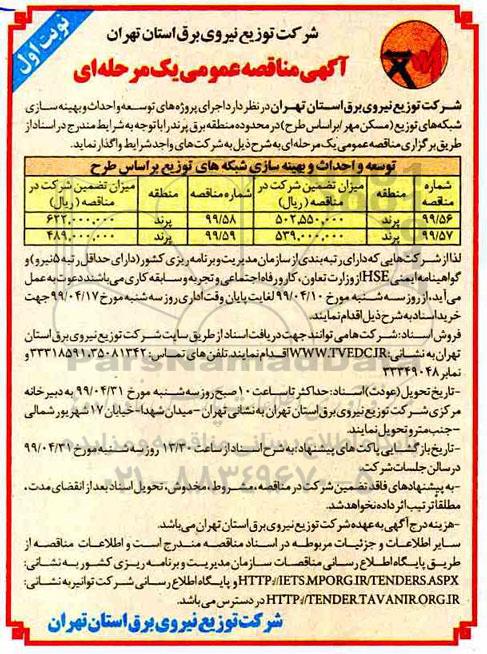 نوبت اول
شرکت توزیع نیروی برق استان تهران
آگهی مناقصه عمومی یک مرحله ای
شرکت توزیع نیروی برق استان تهران در نظر دارد اجرای پروژه های توسعه و احداث و بهینه سازی
شبکه های توزیع (مسکن مهر / براساس طرح) در محدوده منطقه برق پرند را با توجه به شرایط مندرج در اسناد از
طریق برگزاری مناقصه عمومی یک مرحله ای به شرح ذیل به شرکت های واجد شرایط واگذار نماید.
توسعه و احداث و بهینه سازی شبکه های توزیع براساس طرح
شماره مناقصه منطقه میزان تضمین شرکت در مناقصه (ریال) شماره مناقصه منطقه میزان تضمین شرکت در مناقصه (ریال)
۹۹/۵۶ پرند ۵۰۲,۵۵۰,۰۰۰ ۹۹/۵۸ پرند ۶۲۲,۰۰۰,۰۰۰
۹۹/۵۷ پرند ۵۳۹,۰۰۰,۰۰۰ ۹۹/۵۹ پرند ۴۸۹,۰۰۰,۰۰۰
لذا از شرکت هایی که دارای رتبه بندی از سازمان مدیریت و برنامه ریزی کشور (دارای حداقل رتبه ۵ نیرو) و
گواهینامه ایمنی HSE از وزارت تعاون، کار و رفاه اجتماعی و تجربه و سابقه کاری می باشند دعوت به عمل
می آید، از روز سه شنبه مورخ ۹۹/۰۴/۱۰ لغایت پایان وقت اداری روز سه شنبه مورخ ۹۹/۰۴/۱۷ جهت
خرید اسناد به شرح ذیل اقدام نمایند.
فروش اسناد: شرکت ها می توانند جهت دریافت اسناد از طریق سایت شرکت توزیع نیروی برق استان
تهران به نشانی: WWW.TVEDC.IR اقدام نمایند. تلفن های تماس: ۳۵۰۸۱۳۴۲، ۳۳۳۱۸۵۹۱ و
نمابر ۳۳۳۴۹۰۴۸
-تاریخ تحویل (عودت) اسناد: حداکثر تا ساعت ۱۰ صبح روز سه شنبه مورخ ۹۹/۰۴/۳۱ به دبیرخانه
مرکزی شرکت توزیع نیروی برق استان تهران به نشانی تهران - میدان شهدا - خیابان ۱۷ شهریور شمالی
- جنب مترو تحویل نمایند.
-تاریخ بازگشایی پاکت های پیشنهاد: به شرح اسناد از ساعت ۱۳/۳۰ روز سه شنبه مورخ ۹۹/۰۴/۳۱
در سالن جلسات شرکت.
-به پیشنهادهای فاقد تضمین شرکت در مناقصه، مشروط، مخدوش، تحویل اسناد بعد از انقضای مدت،
مطلقا ترتیب اثر داده نخواهد شد.
-هزینه درج آگهی به عهده شرکت توزیع نیروی برق استان تهران می باشد.
سایر اطلاعات و جزئیات مربوطه در اسناد مناقصه مندرج است و اطلاعات مناقصه از
طریق پایگاه اطلاع رسانی مناقصات سازمان مدیریت و برنامه ریزی کشور به نشانی:
HTTP://IETS.MPORG.IR/TENDERS.ASPX و پایگاه اطلاع رسانی شرکت توانیر به نشانی:
HTTP://TENDER.TAVANIR.ORG.IR در دسترس می باشد.
شرکت توزیع نیروی برق استان تهران
ParsNamadData
۰۲۱-۸۸۳۴۹۶۷۰-۵